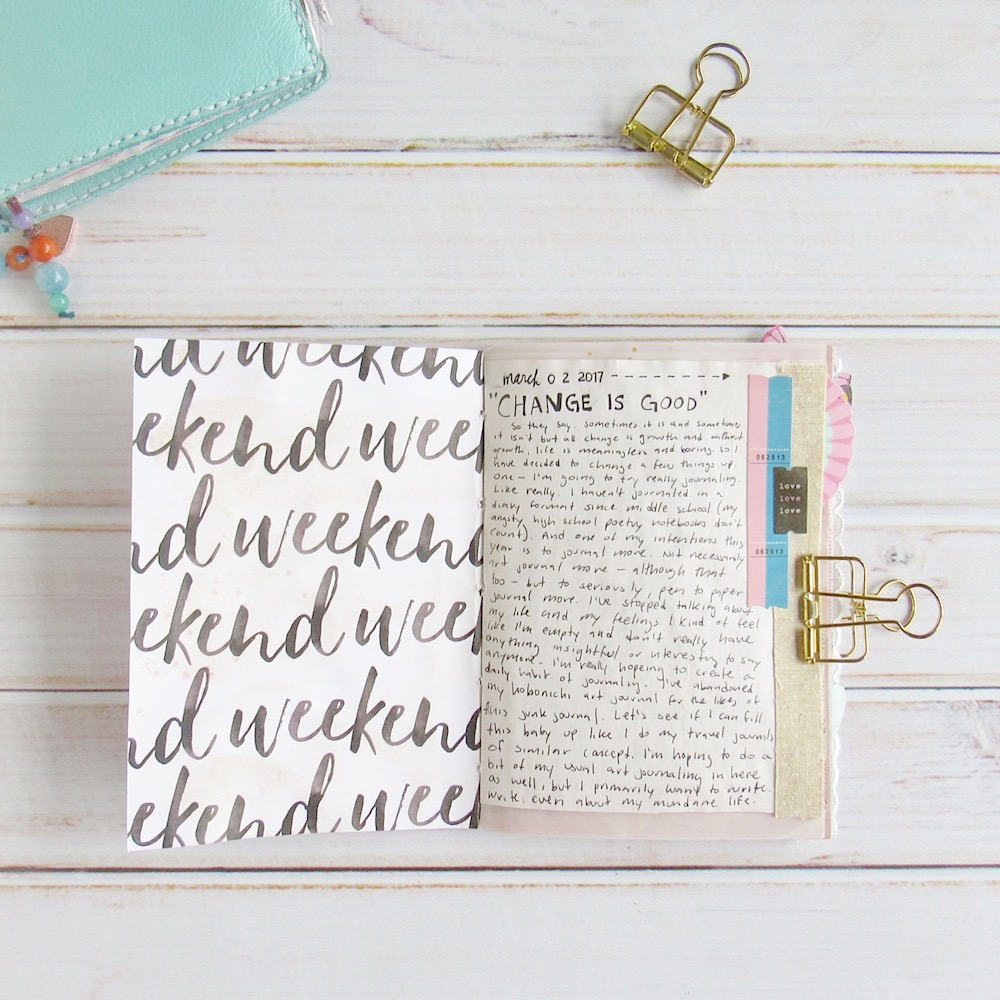 nd weekend
ekend week
nd weekend
ekend week
nd weekend
ekend week
march 02 2017
"CHANGE IS GOOD"
So they say. sometimes it is and sometimes
it isn't but all change is growth and without
growth, life is meaningless and boring. so I
have decided to change a few things up.
one - I'm going to try really journaling.
Like really. I haven't journaled in a
diary format since middle school (my
angsty high school poetry notebooks don't
count). And one of my intentions this
year is to journal more. Not necessarily
art journal more - although that
too - but to seriously, pen to paper
journal more. I've stopped talking about
my life and my feelings. I kind of feel
like I'm empty and don't really have
anything insightful or interesting to say
anymore. I'm really hoping to create a
daily habit of journaling. I've abandoned
my hobonichi art journal for the likes of
this junk journal. Let's see if I can fill
this baby up like I do my travel journals
of similar concept. I'm hoping to do a
bit of my usual art journaling in here
as well, but I primarily want to write.
write even about my mundane life.
062813
love
love
love
062813